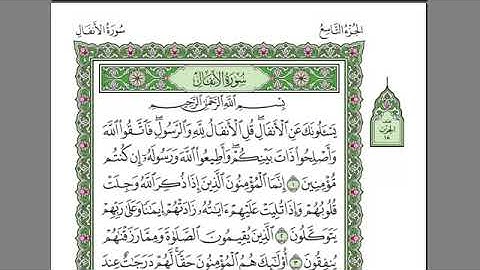 الجزء التاسع
سورة الأنفال
سورة الأنفال
بِسْمِ اللَّهِ الرَّحْمَٰنِ الرَّحِيمِ
يَسْـَٔلُونَكَ عَنِ الْأَنفَالِ ۖ قُلِ الْأَنفَالُ لِلَّهِ وَالرَّسُولِ ۖ فَاتَّقُوا اللَّهَ
وَأَصْلِحُوا ذَاتَ بَيْنِكُمْ ۖ وَأَطِيعُوا اللَّهَ وَرَسُولَهُ إِن كُنتُم
مُّؤْمِنِينَ ١ إِنَّمَا الْمُؤْمِنُونَ الَّذِينَ إِذَا ذُكِرَ اللَّهُ وَجِلَتْ
قُلُوبُهُمْ وَإِذَا تُلِيَتْ عَلَيْهِمْ ءَايَٰتُهُ زَادَتْهُمْ إِيمَٰنًا وَعَلَىٰ رَبِّهِمْ
يَتَوَكَّلُونَ ٢ الَّذِينَ يُقِيمُونَ الصَّلَوٰةَ وَمِمَّا رَزَقْنَٰهُمْ
يُنفِقُونَ ٣ أُولَٰئِكَ هُمُ الْمُؤْمِنُونَ حَقًّا ۚ لَّهُمْ دَرَجَٰتٌ عِندَ
الحزب
١٨